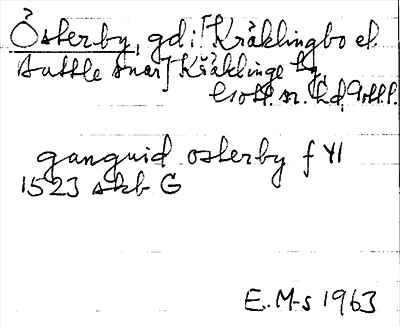 Österby, gd i ⌈Kräklingbo el.
Auttle snar⌉ Kräklinge
Gotl. n. hd, Gotl. l.
ganguid osterby f VI
1523 skb G
E. M-s 1963